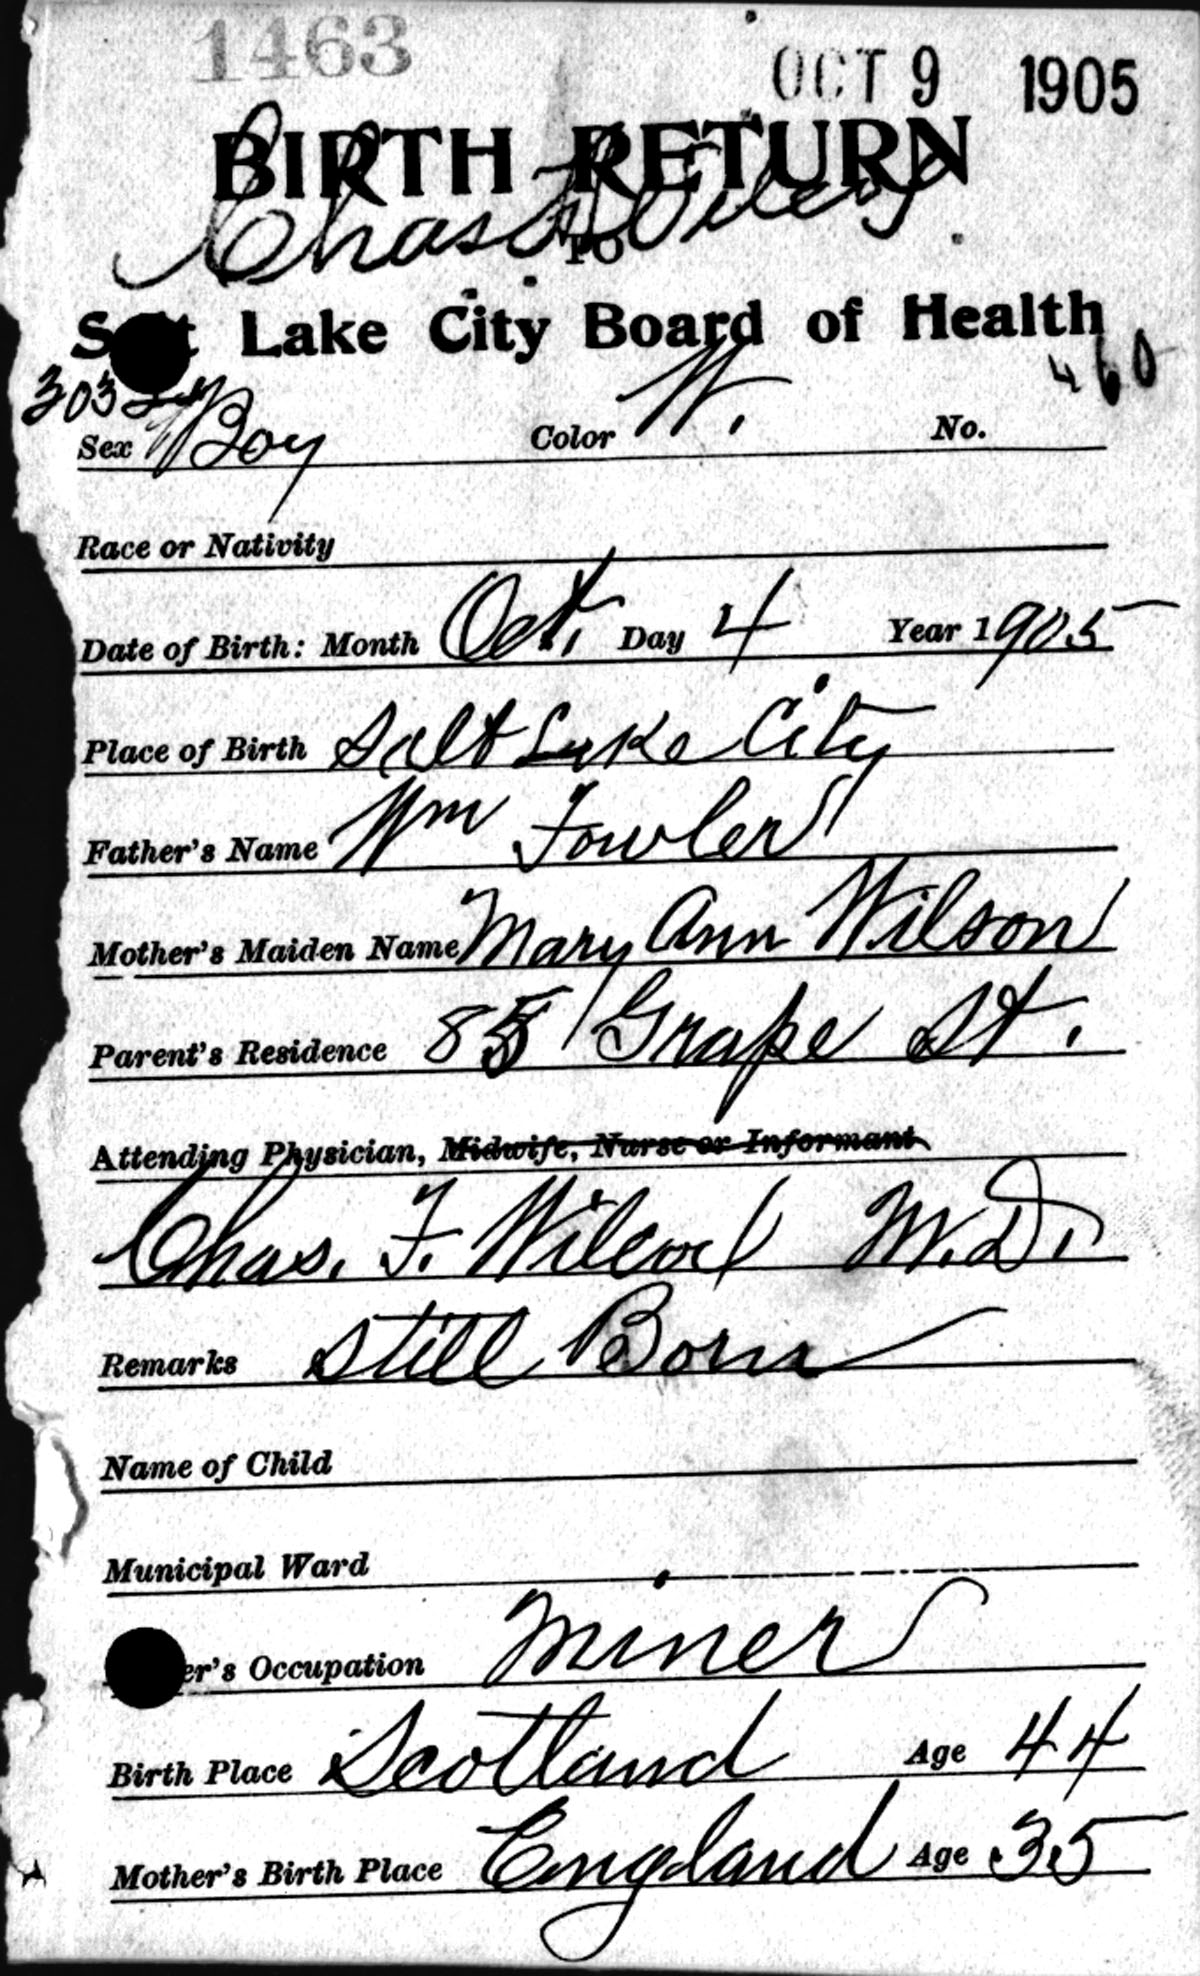 1463
OCT 9 1905
BIRTH RETURN
Chas
TO
Salt Lake City Board of Health
303 460
Sex Boy Color W. No.
Race or Nativity
Date of Birth: Month Oct. Day 4 Year 1905
Place of Birth Salt Lake City
Father's Name Wm Fowler
Mother's Maiden Name Mary Ann Wilson
Parent's Residence Grape St.
Attending Physician, Midwife, Nurse or Informant
Chas. F. Wilcox M.D.
Remarks Still Born
Name of Child
Municipal Ward
er's Occupation Miner
Birth Place Scotland Age 44
Mother's Birth Place England Age 35